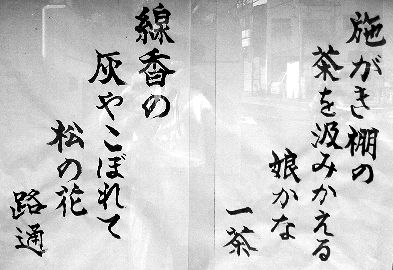 施がき棚の
茶を汲みかえる
娘かな
一茶
線香の
灰やこぼれて
松の花
路通